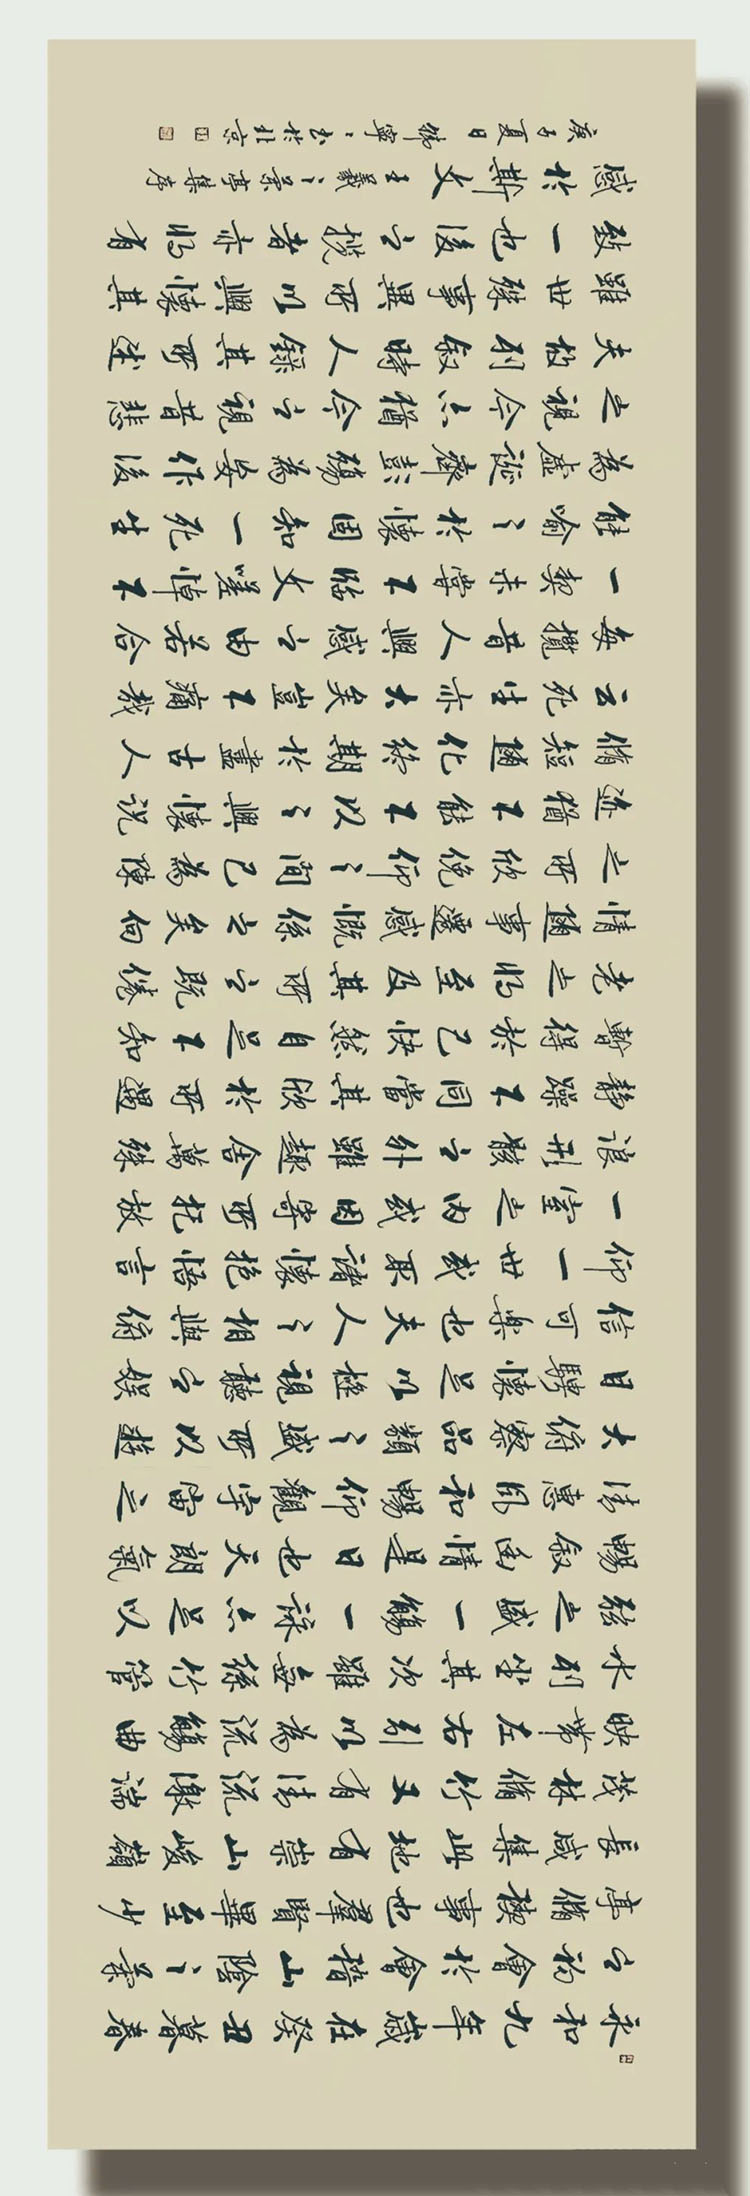 永和九年歲在癸丑暮春
之初會於會稽山陰之蘭
亭脩禊事也群賢畢至少
長咸集此地有崇山峻嶺
茂林脩竹又有清流激湍
映帶左右引以為流觴曲
水列坐其次雖無絲竹管
弦之盛一觴一詠亦足以
暢敘幽情是日也天朗氣
清惠風和暢仰觀宇宙之
大俯察品類之盛所以遊
目騁懷足以極視聽之娛
信可樂也夫人之相與俯
仰一世或取諸懷抱悟言
一室之內或因寄所托放
浪形骸之外雖趣舍萬殊
靜躁不同當其欣於所遇
暫得於己快然自足不知
老之將至及其所之既倦
情隨事遷感慨係之矣向
之所欣俛仰之間已為陳
迹猶不能不以之興懷況
脩短隨化終期於盡古人
云死生亦大矣豈不痛哉
每攬昔人興感之由若合
一契未嘗不臨文嗟悼不
能喻之於懷固知一死生
為虛誕齊彭殤為妄作後
之視今亦猶今之視昔悲
夫故列敘時人錄其所述
雖世殊事異所以興懷其
致一也後之攬者亦將有
感於斯文 王羲之蘭亭集序
庚子夏日 寧書於北京